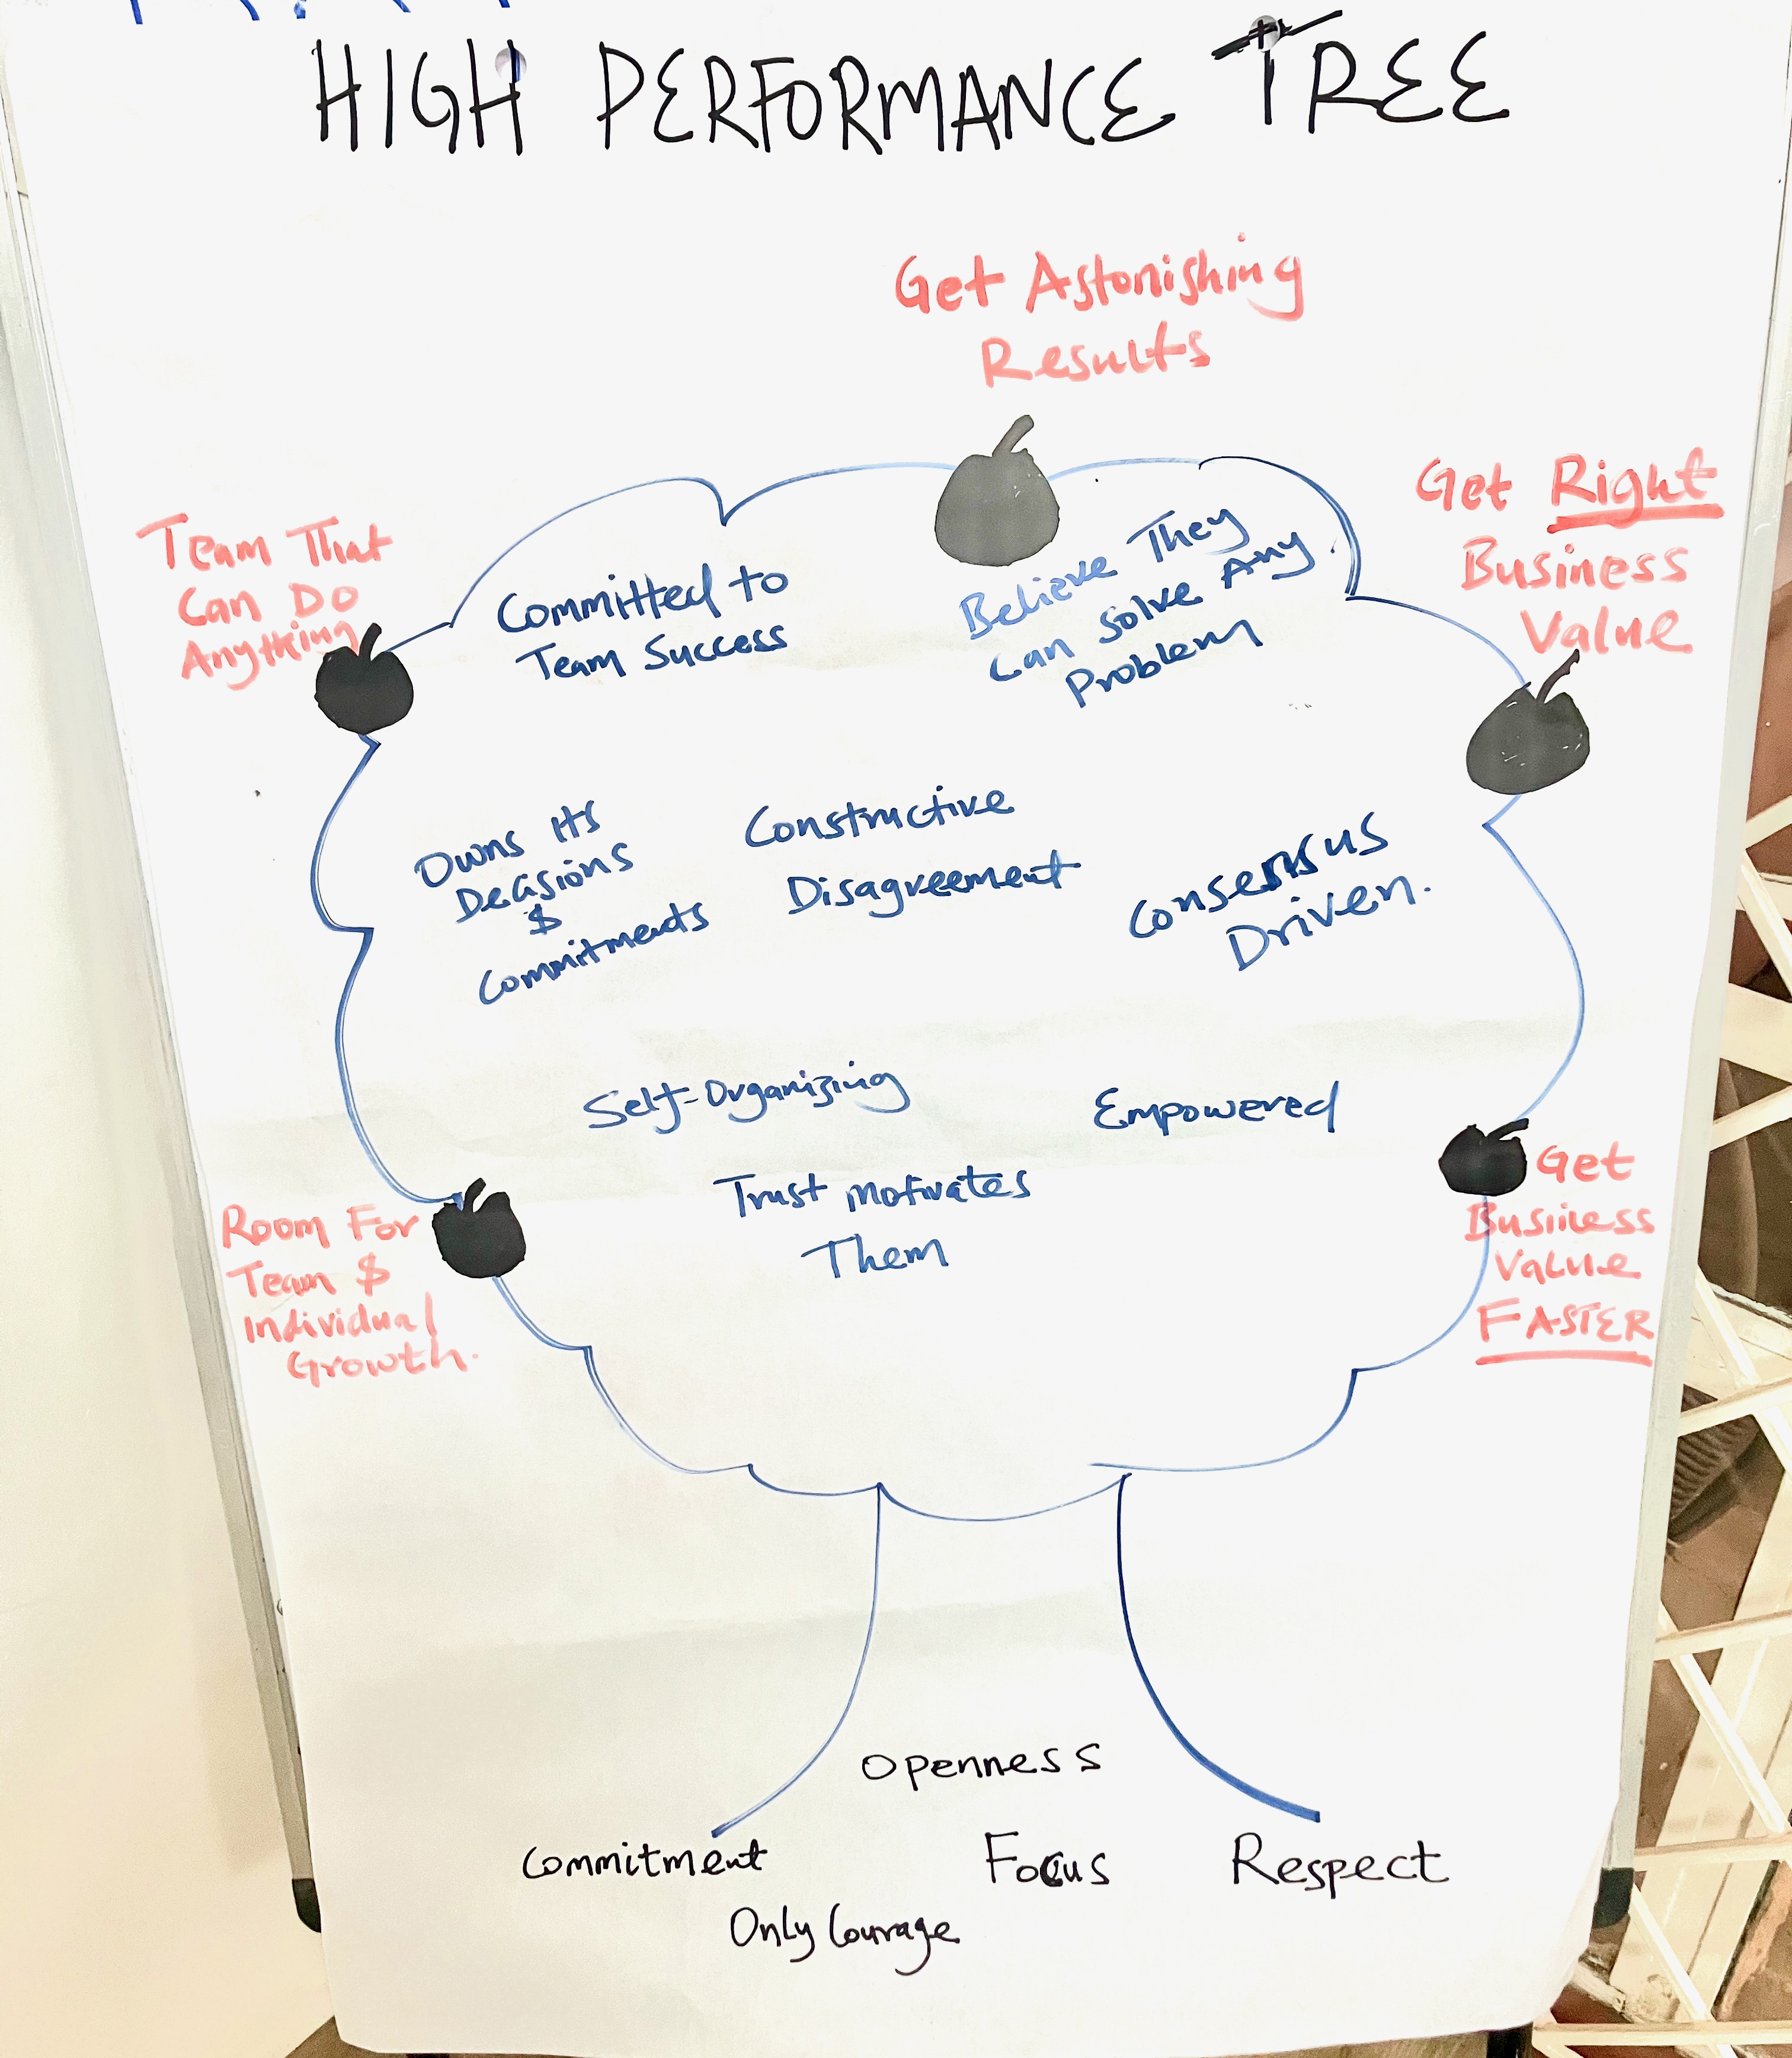 HIGH PERFORMANCE TREE
Get Astonishing
Results
Team That
Can Do
Anything
Get Right
Business
Value
Committed to
Team Success
Believe They
Can Solve Any
Problem
Owns Its
Decisions
$
Commitments
Constructive
Disagreement
Consensus
Driven.
Self-Organizing
Empowered
Trust motivates
Them
Room For
Team $
Individual
Growth.
Get
Business
Value
FASTER
Openness
Commitment
Focus
Respect
Only Courage